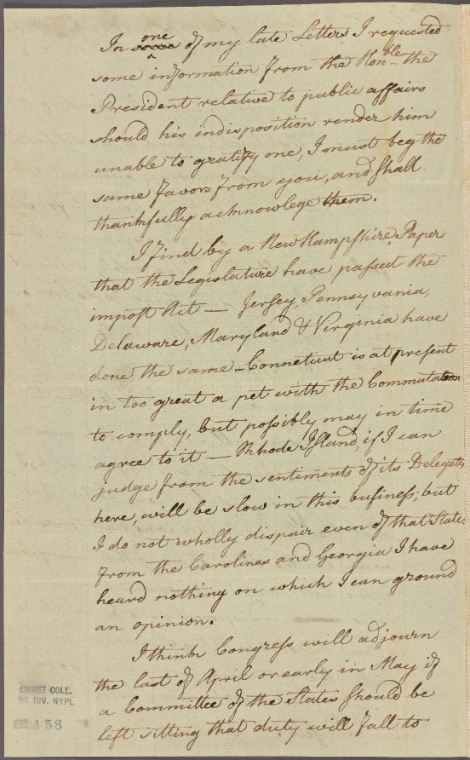 In one of my late Letters I requested
some information from the Honble the
President relative to public affairs
should his indisposition render him
unable to gratify one, I must beg the
same favors from you, and shall
thankfully acknowlege them.
I find by a New Hampshire Paper
that the Legislature have passed the
impost Act — Jersey, Pennsylvania,
Delaware, Maryland & Virginia have
done the same — Connecticut is at present
in too great a pet with the Commutation
to comply, but possibly may in time
agree to it — Rhode Island, if I can
judge from the sentiments of its Delegates
here, will be slow in this business; but
I do not wholly dispair even of that State.
From the Carolinas and Georgia I have
heard nothing on which I can ground
an opinion.
I think Congress will adjourn
the last of April or early in May if
a Committee of the States should be
left sitting that duty will fall to
EMMET COLL.
DIV. NYPL
458